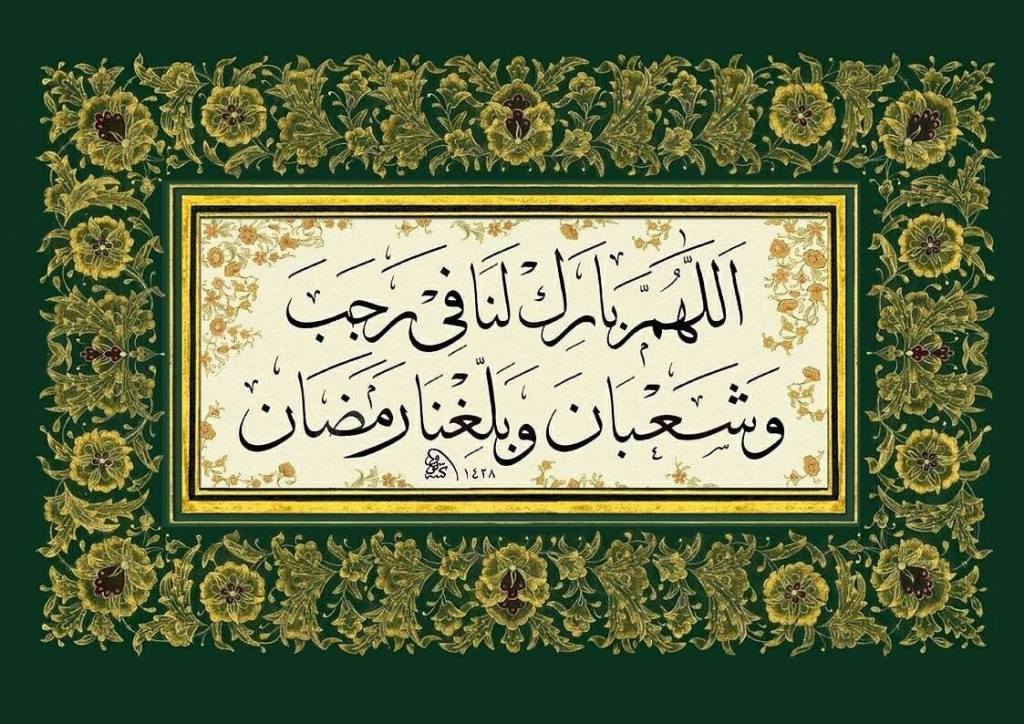 اَللّٰهُمَّ بَارِكْ لَنَا فِى رَجَبَ
وَشَعْبَانَ وَبَلِّغْنَا رَمَضَانَ
١٤٢٨